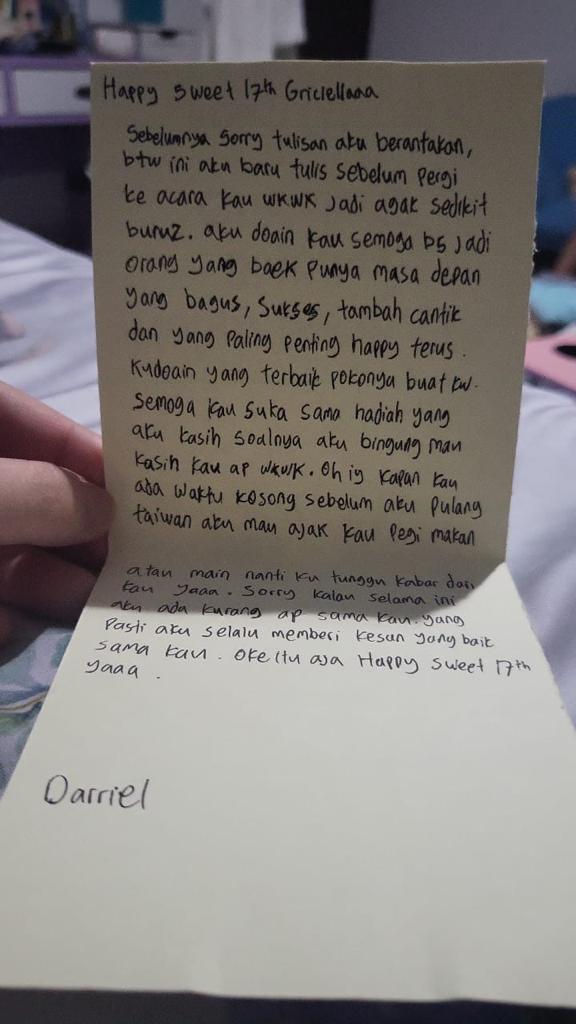 Happy sweet 17th Griciellaaa
Sebelumnya sorry tulisan aku berantakan,
btw ini aku baru tulis sebelum pergi
ke acara kau wkwk Jadi agak sedikit
buruz. aku doain kau semoga bs jadi
orang yang baek punya masa depan
yang bagus, Sukses, tambah cantik
dan yang paling penting happy terus.
Kudoain yang terbaik pokonya buat kw.
Semoga kau suka sama hadiah yang
aku kasih soalnya aku bingung mau
kasih kau ap wkwk. Oh iy kapan kau
ada waktu kosong sebelum aku pulang
taiwan aku mau ajak kau pegi makan
atau main nanti ku tunggu kabar dari
kau yaaa. Sorry kalau selama ini
aku ada kurang ap sama kau. yang
Pasti aku selalu memberi kesan yang baik
sama kau. Oke itu aja Happy sweet 17th
yaaa.
Darriel